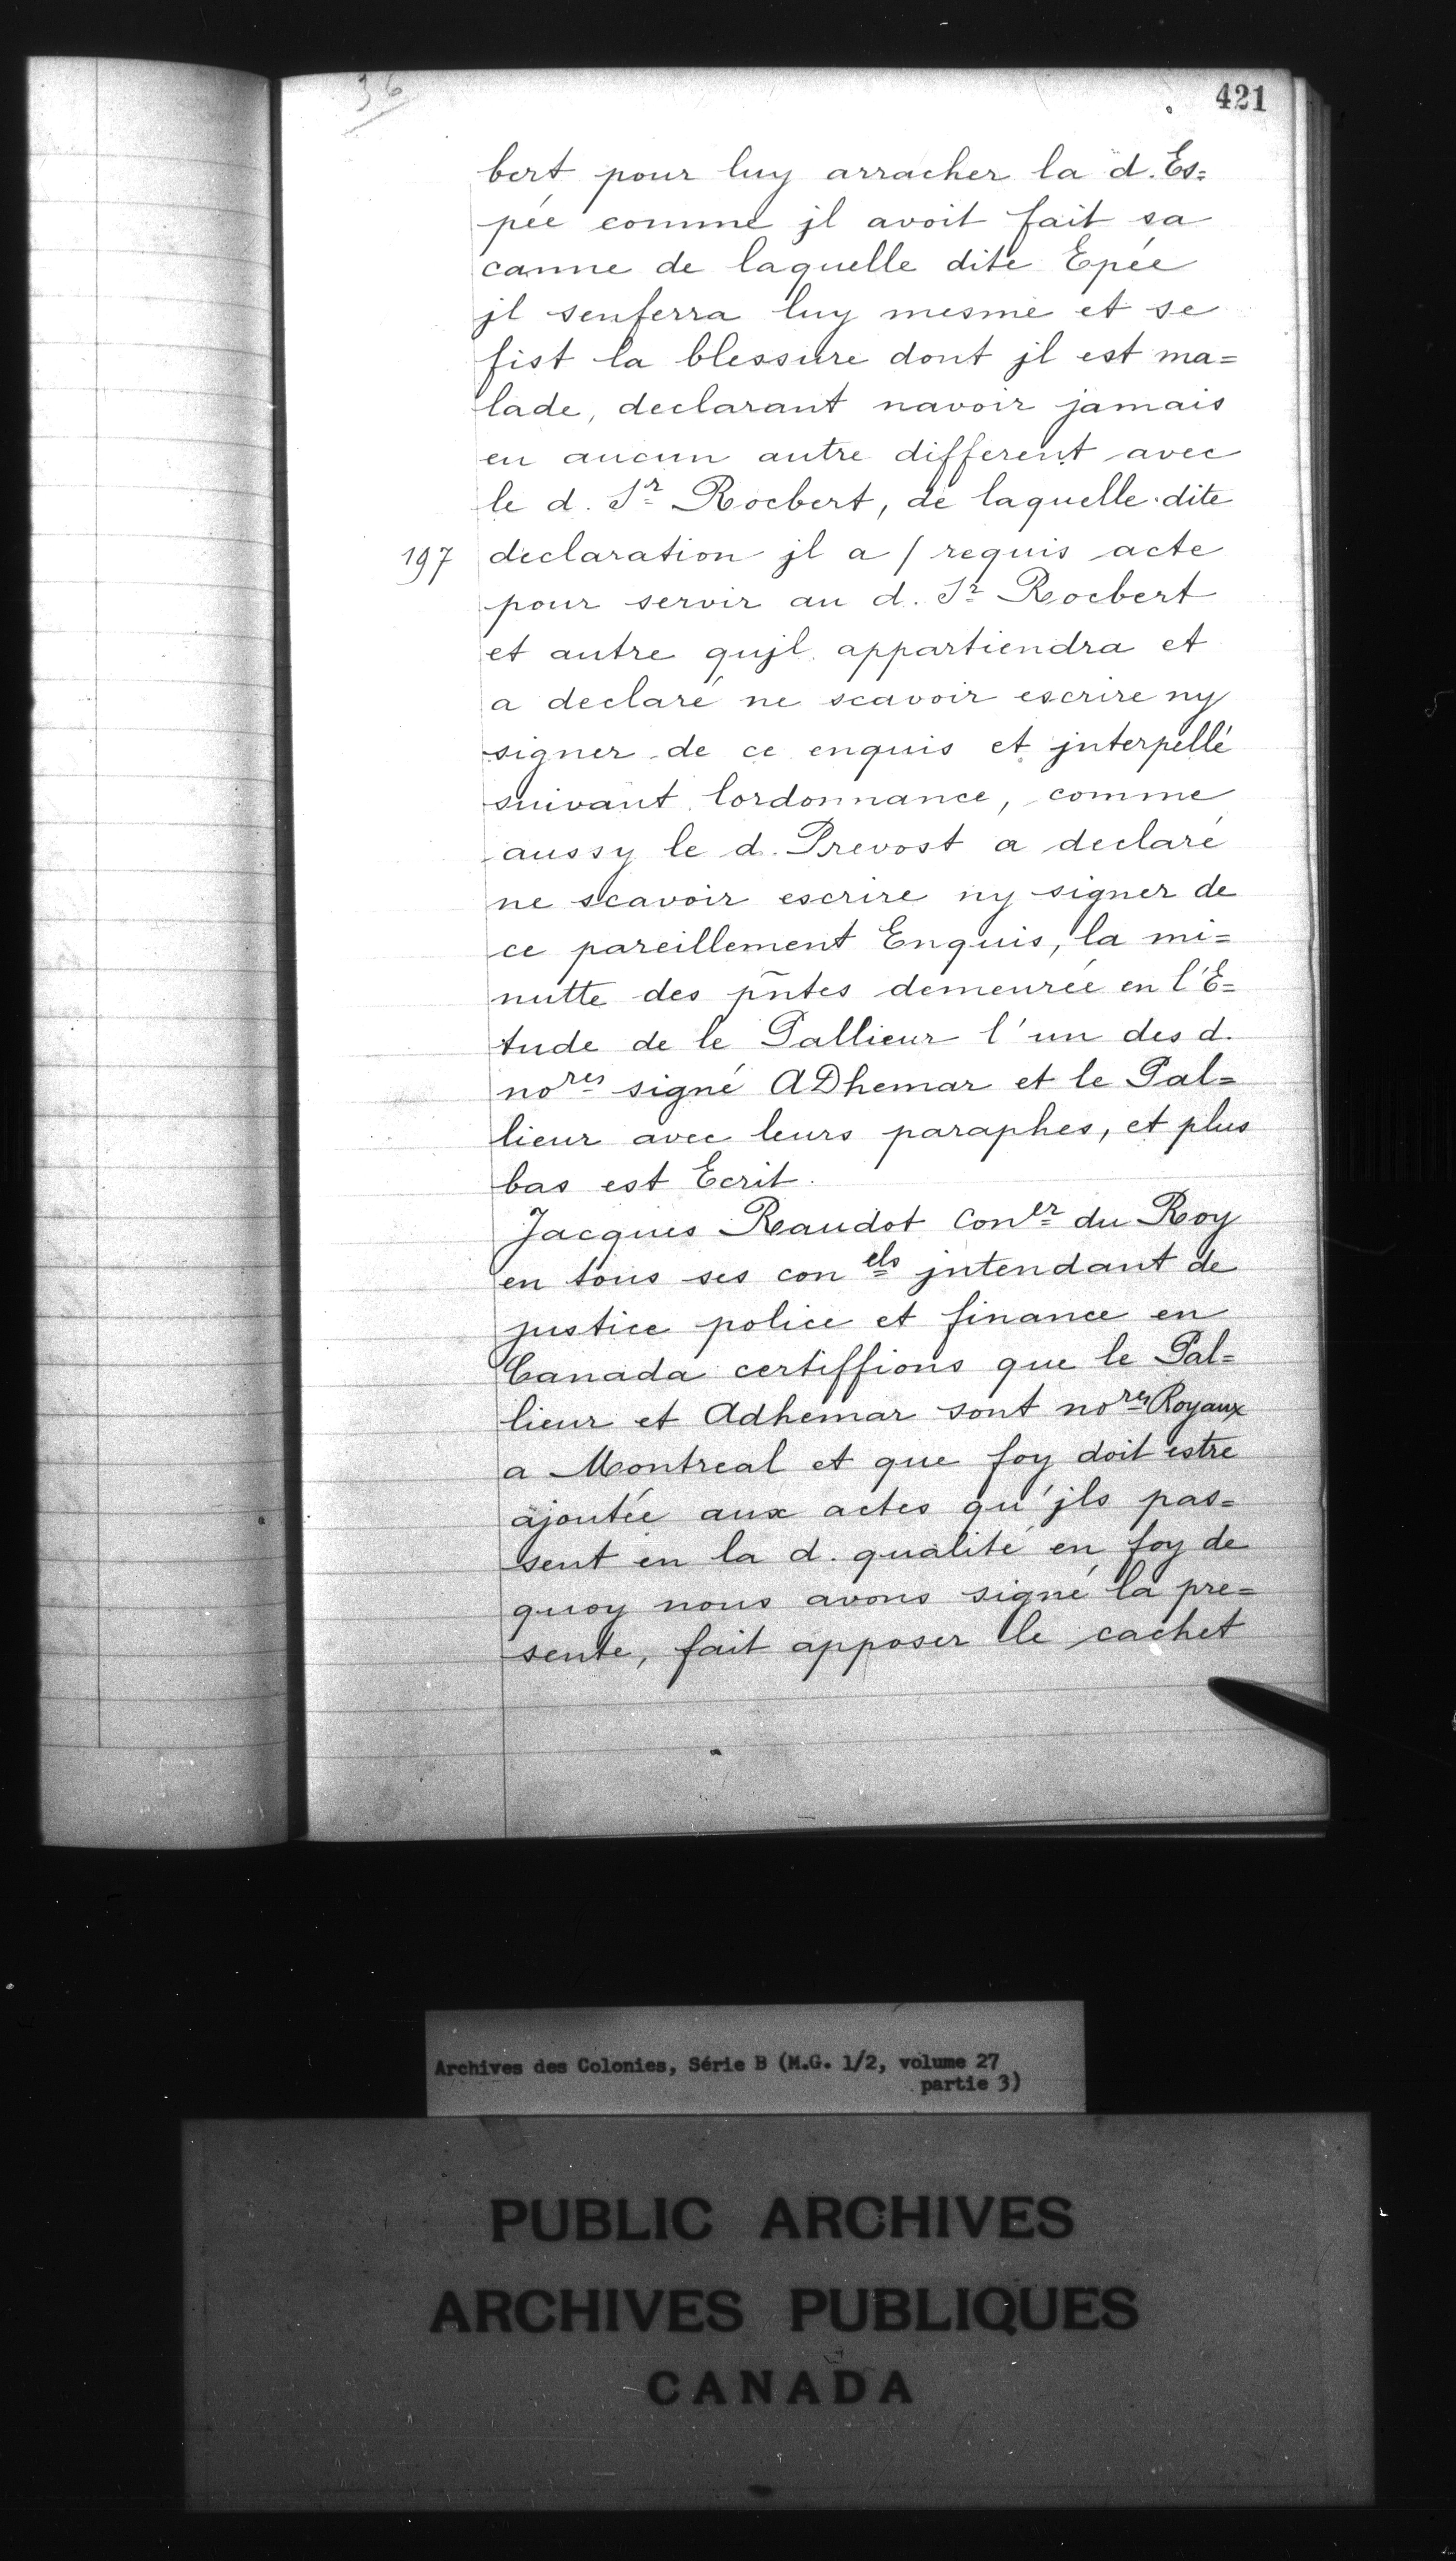 36
421
bert pour luy arracher la d. Es=
pée comme jl avoit fait sa
canne de laquelle dite Epée
jl senferra luy mesme et se
fist la blessure dont jl est ma=
lade, declarant navoir jamais
eu aucun autre different avec
le d. Sr Rocbert, de laquelle dite
197 declaration jl a / requis acte
pour servir au d. Sr Rocbert
et autre qujl appartiendra et
a declaré ne scavoir escrire ny
signer de ce enquis et jnterpellé
suivant lordonnance, comme
aussy le d. Prevost a declaré
ne scavoir escrire ny signer de
ce pareillement Enquis, la mi=
nutte des pñtes demeurée en l'E=
tude de le Pallieur l'un des d.
nores signé ADhemar et le Pal=
lieur avec leurs paraphes, et plus
bas est Ecrit.
Jacques Raudot Coner du Roy
en tous ses conels jntendant de
justice police et finance en
Canada certiffions que le Pal=
lieur et Adhemar sont nores Royaux
a Montreal et que foy doit estre
ajoutée aux actes qu'jls pas=
sent en la d. qualité en foy de
quoy nous avons signé la pre=
sente, fait apposer le cachet
Archives des Colonies, Série B (M.G. 1/2, volume 27
partie 3)
PUBLIC ARCHIVES
ARCHIVES PUBLIQUES
CANADA